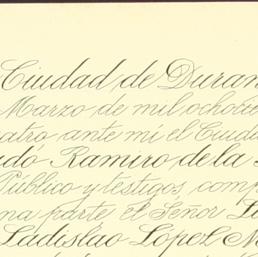 Ciudad de Duran
Marzo de mil ochocie
atro ante mi el Ciuda
dó Ramiro de la
Público y testigos, comp
na parte el Señor
Ladislao López